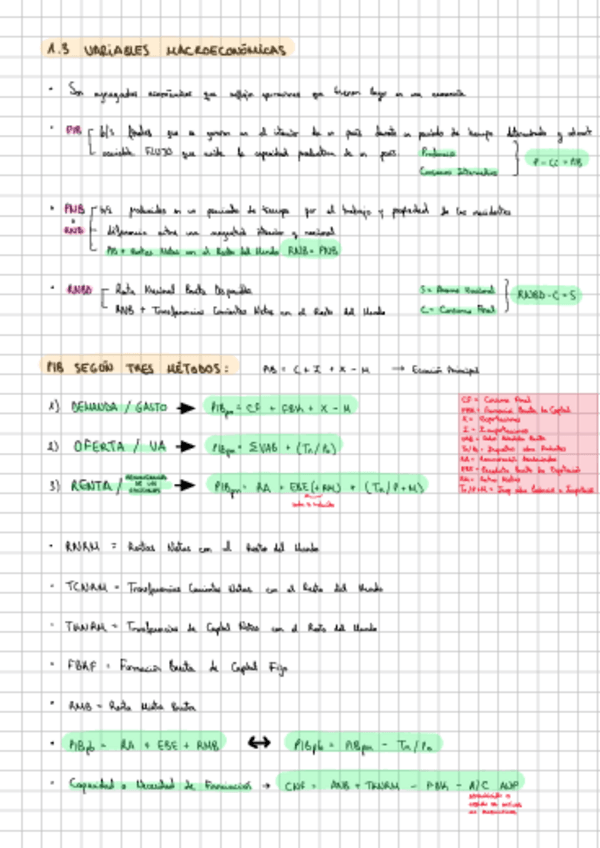 1.3 VARIABLES MACROECONÓMICAS
• Son agregados económicos que reflejan operaciones que tienen lugar en una economía
• PIB b/s finales que se generan en el interior de un país durante un periodo de tiempo determinado y
variable FLUJO que mide la capacidad productiva de un país Producción
Consumos Intermedios P - CI = PIB
• PNB b/s producidos en un periodo de tiempo por el trabajo y propiedad de los residentes
RNB diferencia entre una magnitud interior y nacional
PIB + Rentas Netas con el Resto del Mundo RNB = PNB
• RNBD Renta Nacional Bruta Disponible S = Ahorro Nacional
RNB + Transferencias Corrientes Netas con el Resto del Mundo C = Consumo Final RNBD - C = S
PIB SEGÚN TRES MÉTODOS: PIB = C + I + X - M → Ecuación Principal
1) DEMANDA / GASTO → PIBpm = CF + FBK + X - M
2) OFERTA / VA → PIBpm = ΣVAB + (Tn/Pn)
3) RENTA / → PIBpm = RA + EBE (+RM) + (Tn/P+M)
CF = Consumo Final
FBK = Formación Bruta de Capital
X = Exportaciones
I = Importaciones
VAB = Valor Añadido Bruto
RA = Remuneración Asalariados
EBE = Excedente Bruto de Explotación
• RNRM = Rentas Netas con el Resto del Mundo
• TCNRM = Transferencias Corrientes Netas con el Resto del Mundo
• TKNRM = Transferencias de Capital Netas con el Resto del Mundo
• FBKF = Formación Bruta de Capital Fijo
• RMB = Renta Mixta Bruta
• PIBpb = RA + EBE + RMB ↔ PIBpb = PIBpm - Tn/Pn
• Capacidad o Necesidad de Financiación → CNF = ANB + TKNRM - FBK - A/C ANP